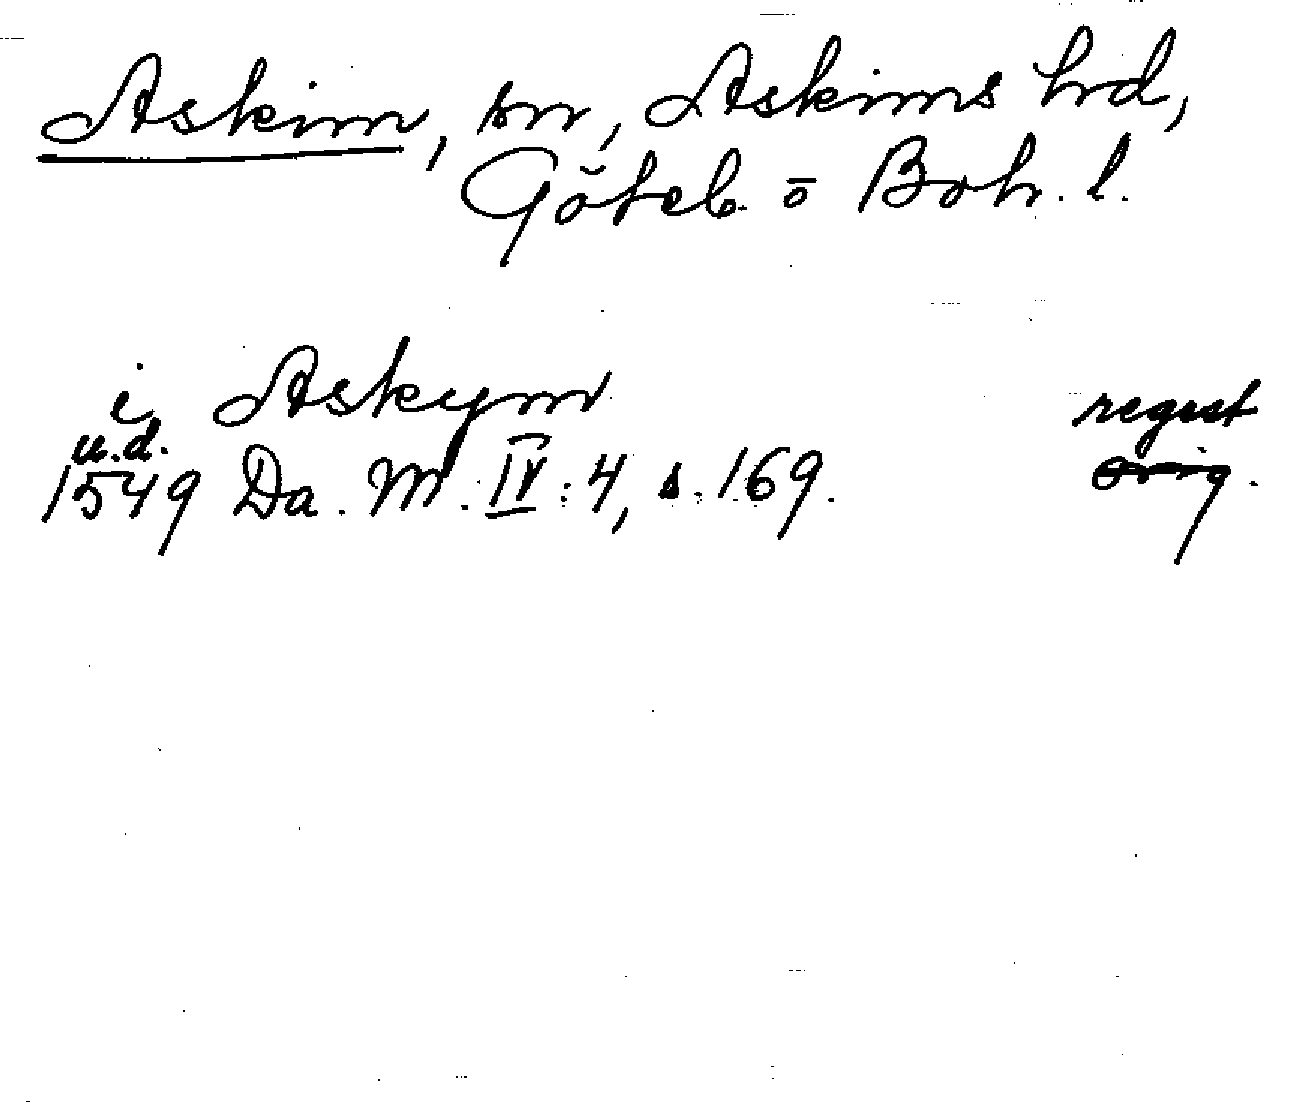 Askim, sn, Askims hrd,
Göteb. o Boh. l.
i Askym regest
u.d.
1549 Da. M. IV : 4, s. 169. orig.